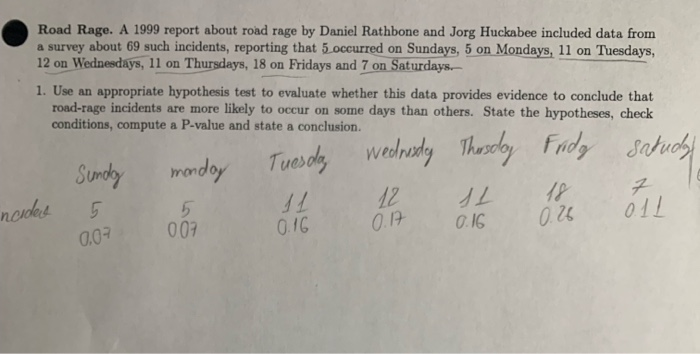 Road Rage. A 1999 report about road rage by Daniel Rathbone and Jorg Huckabee included data from
a survey about 69 such incidents, reporting that 5 occurred on Sundays, 5 on Mondays, 11 on Tuesdays,
12 on Wednesdays, 11 on Thursdays, 18 on Fridays and 7 on Saturdays.
1. Use an appropriate hypothesis test to evaluate whether this data provides evidence to conclude that
road-rage incidents are more likely to occur on some days than others. State the hypotheses, check
conditions, compute a P-value and state a conclusion.
Sunday monday Tuesday wednesday Thursday Friday
5 5 11 12 11 18 7
0.07 007 0.16 0.17 0.16 0.26 011